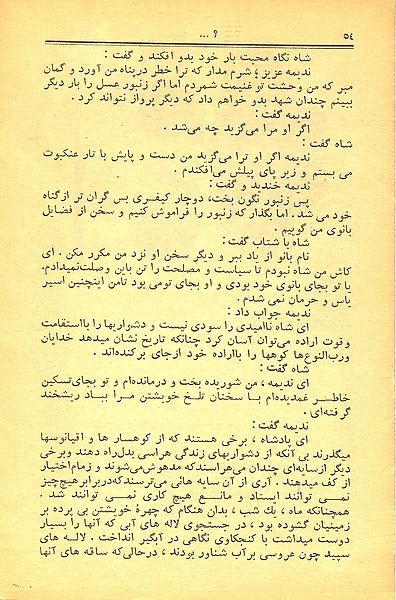 ۵۴
... ؟
شاه نگاه محبت بار خود بدو افکند و گفت :
ندیمه عزیز ؛ شرم مدار که ترا خطر در پناه من آورد و گمان
مبر که من وحشت تو غنیمت شمردم اما اگر زنبور عسل را بار دیگر
ببینم چندان شهد بدو خواهم داد که دیگر پرواز نتواند کرد .
ندیمه گفت :
اگر او مرا می‌گزید چه می‌شد .
شاه گفت :
ندیمه اگر او ترا می‌گزید من دست و پایش با تار عنکبوت
می بستم و زیر پای پیلش می‌افکندم .
ندیمه خندید و گفت :
پس زنبور نگون بخت، دوچار کیفری بس گران تر از گناه
خود می شد . اما بگذار که زنبور را فراموش کنیم و سخن از فضایل
بانوی من گوییم .
شاه با شتاب گفت :
نام بانو از یاد ببر و دیگر سخن او نزد من مکرر مکن . ای
کاش من شاه نبودم تا سیاست و مصلحت را تن باین وصلت نمیدادم.
یا تو بجای بانوی خود بودی و او بجای تو می بود تا من اینچنین اسیر
یاس و حرمان نمی شدم .
ندیمه جواب داد :
ای شاه ناامیدی را سودی نیست و دشواریها را با استقامت
وقوت اراده می‌توان آسان کرد چنانکه تاریخ نشان میدهد خدایان
ورب‌النوع‌ها کوهها را با اراده خود از جای برکنده‌اند .
شاه گفت :
ای ندیمه ، من شوریده بخت و درمانده‌ام و تو بجای تسکین
خاطر غمدیده‌ام با سخنان تلخ خویشتن مرا بباد ریشخند
گرفته‌ای .
ندیمه گفت :
ای پادشاه ، برخی هستند که از کوهسار ها و اقیانوسها
میگذرند بی آنکه از دشواریهای زندگی هراسی بدل راه دهند و برخی
دیگر از سایه‌ای چندان می‌هراسند که مدهوش می‌شوند و زمام اختیار
از کف میدهند . آری از آن سایه هائی می‌ترسند که در برابر هیچ چیز
نمی توانند ایستاد و مانع هیچ کاری نمی توانند شد .
همچنانکه ماه ، یك شب ، بدان هنگام که چهرهٔ خویشتن بی پرده بر
زمینیان گشوده بود ، در جستجوی لاله های آبی که آنها را بسیار
دوست میداشت با کنجکاوی نگاهی در آبگیر انداخت . لاله های
سپید چون عروسی بر آب شناور بودند ، در حالی‌که ساقه های آنها